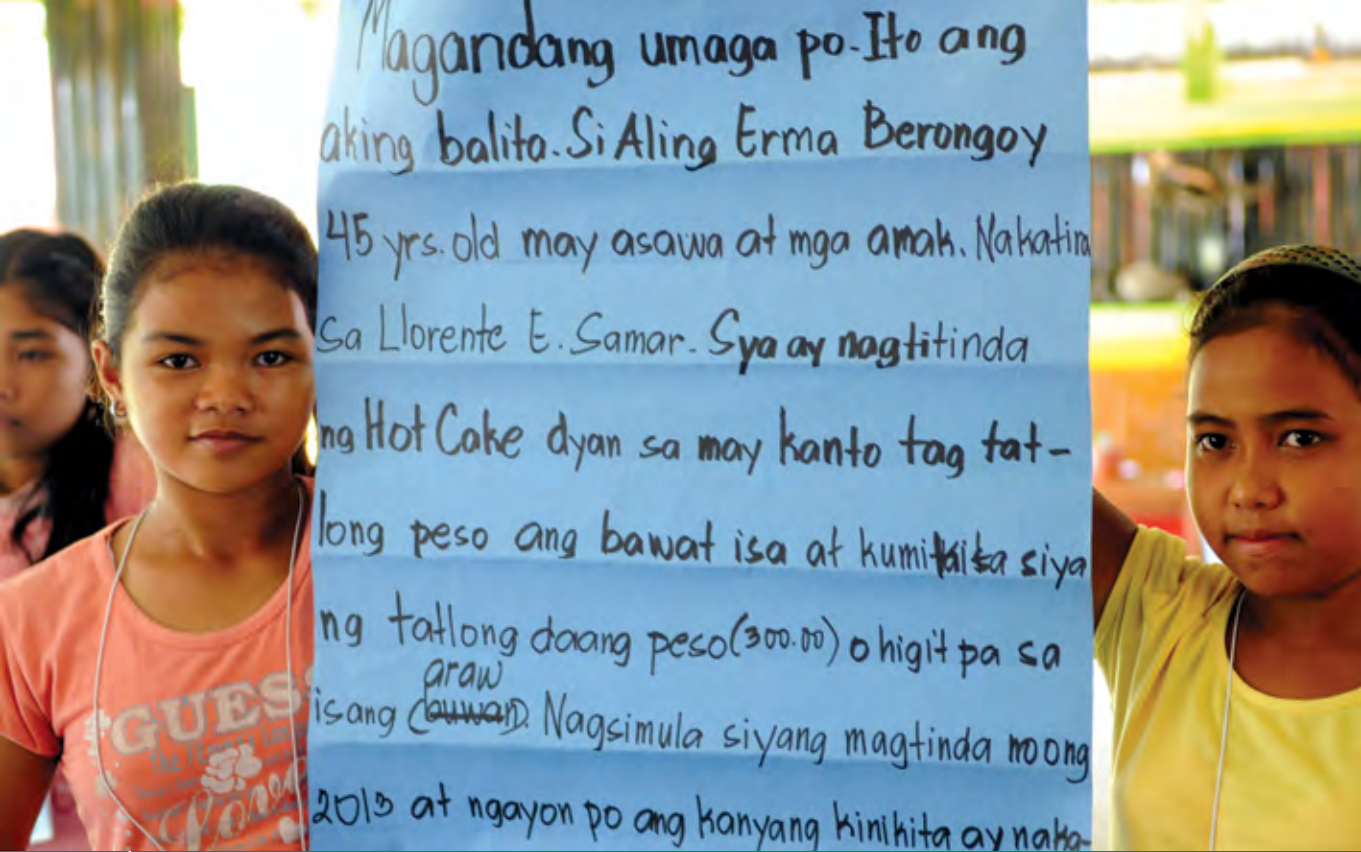 Magandang umaga po. Ito ang
aking balita. Si Aling Erma Berongoy
45 yrs. old may asawa at mga anak. Nakatira
sa Llorente E. Samar. Sya ay nagtitinda
ng Hot Cake dyan sa may kanto tag tat-
long peso ang bawat isa at kumikita siya
ng tatlong daang peso (300.00) o higit pa sa
araw
isang (buwan). Nagsimula siyang magtinda noong
2013 at ngayon po ang kanyang kinikita ay naka-
GUESS